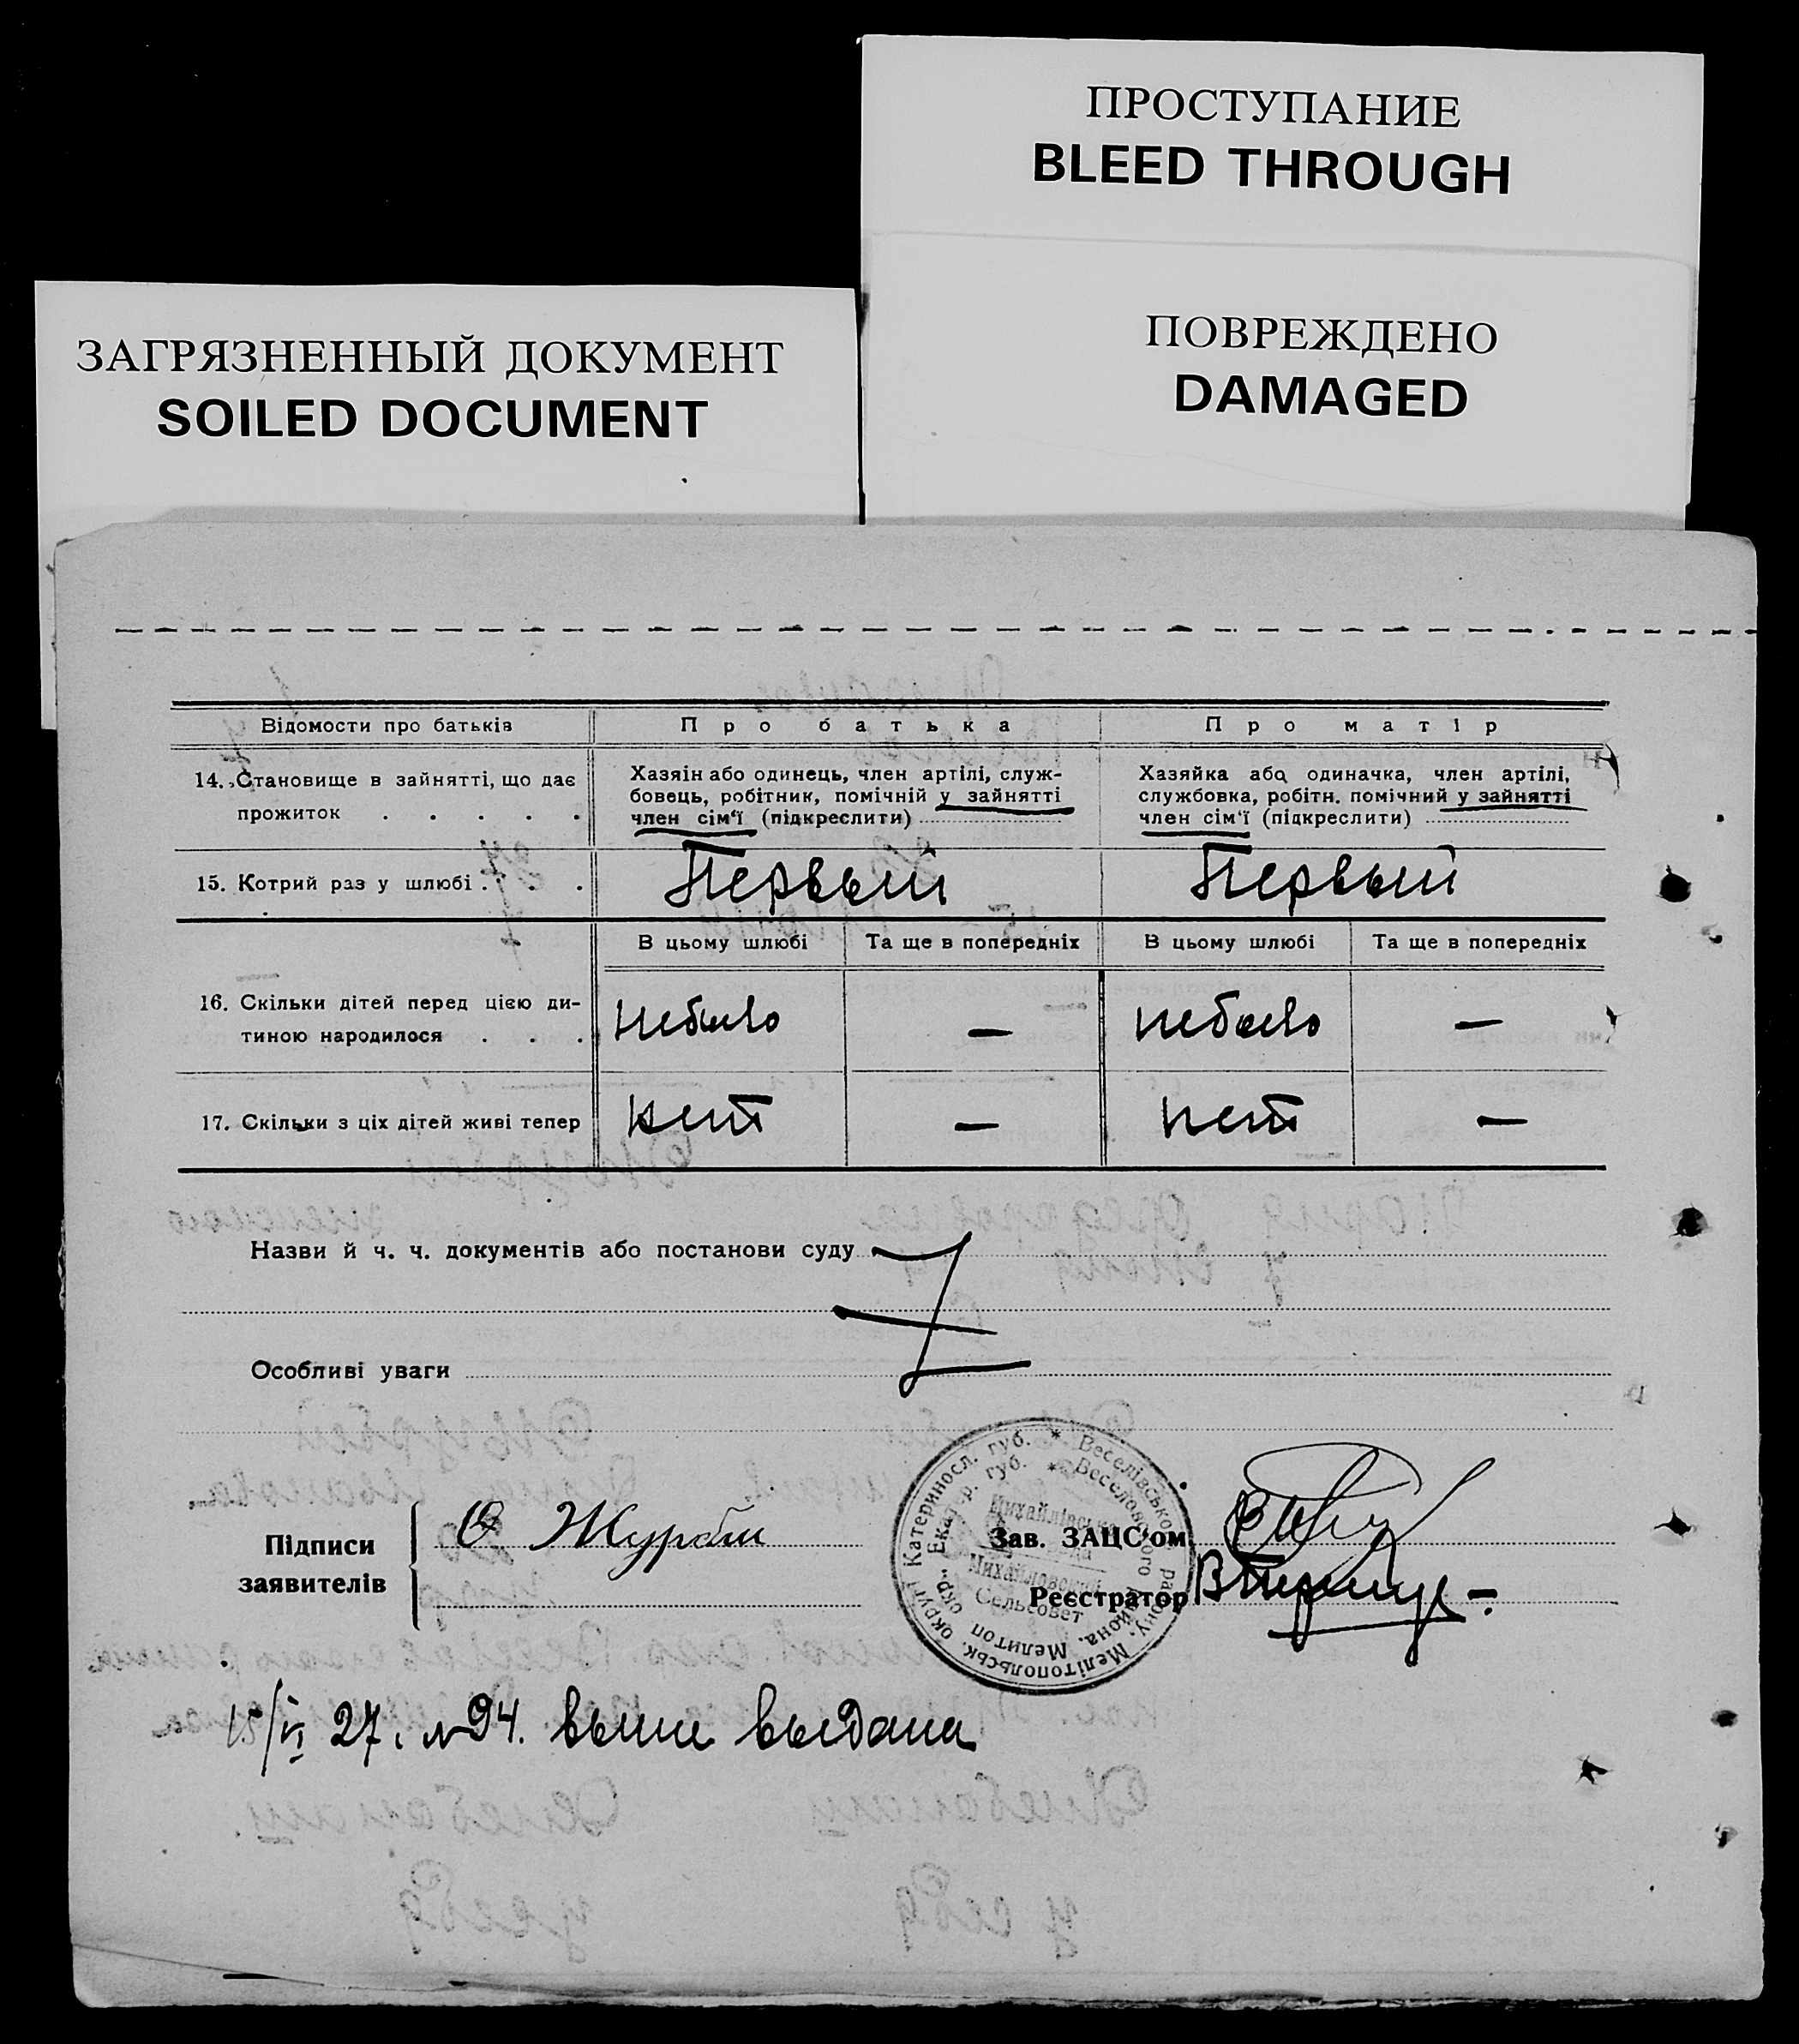 ПРОСТУПАНИЕ
BLEED THROUGH
ПОВРЕЖДЕНО
DAMAGED
ЗАГРЯЗНЕННЫЙ ДОКУМЕНТ
SOILED DOCUMENT
Відомости про батьків Про батька Про матір
14. Становище в зайнятті, що дає
прожиток . . . . .
Хазяін або одинець, член артілі, служ-
бовець, робітник, помічній у зайнятті
член сім'ї (підкреслити)
Хазяйка або одиначка, член артілі,
службовка, робітн. помічний у зайнятті
член сім'ї (підкреслити)
15. Котрий раз у шлюбі . . . Первый Первый
В цьому шлюбі Та ще в попередніх В цьому шлюбі Та ще в попередніх
16. Скільки дітей перед цією ди-
тиною народилося . . . небыло — небыло —
17. Скільки з ціх дітей живі тепер нет — нет —
Назви й ч. ч. документів або постанови суду
Особливі уваги
Підписи
заявителів
О Журбы
Катериносл. губ. * Веселівського району, Мелітопольськ. округи
Екатер. губ. * Веселовского района, Мелитоп окр.
Михайлівська
Михайловский
Сельсовет
Зав. ЗАЦС'ом
Реєстратор
15/VI 27. N 94. выпис выдана